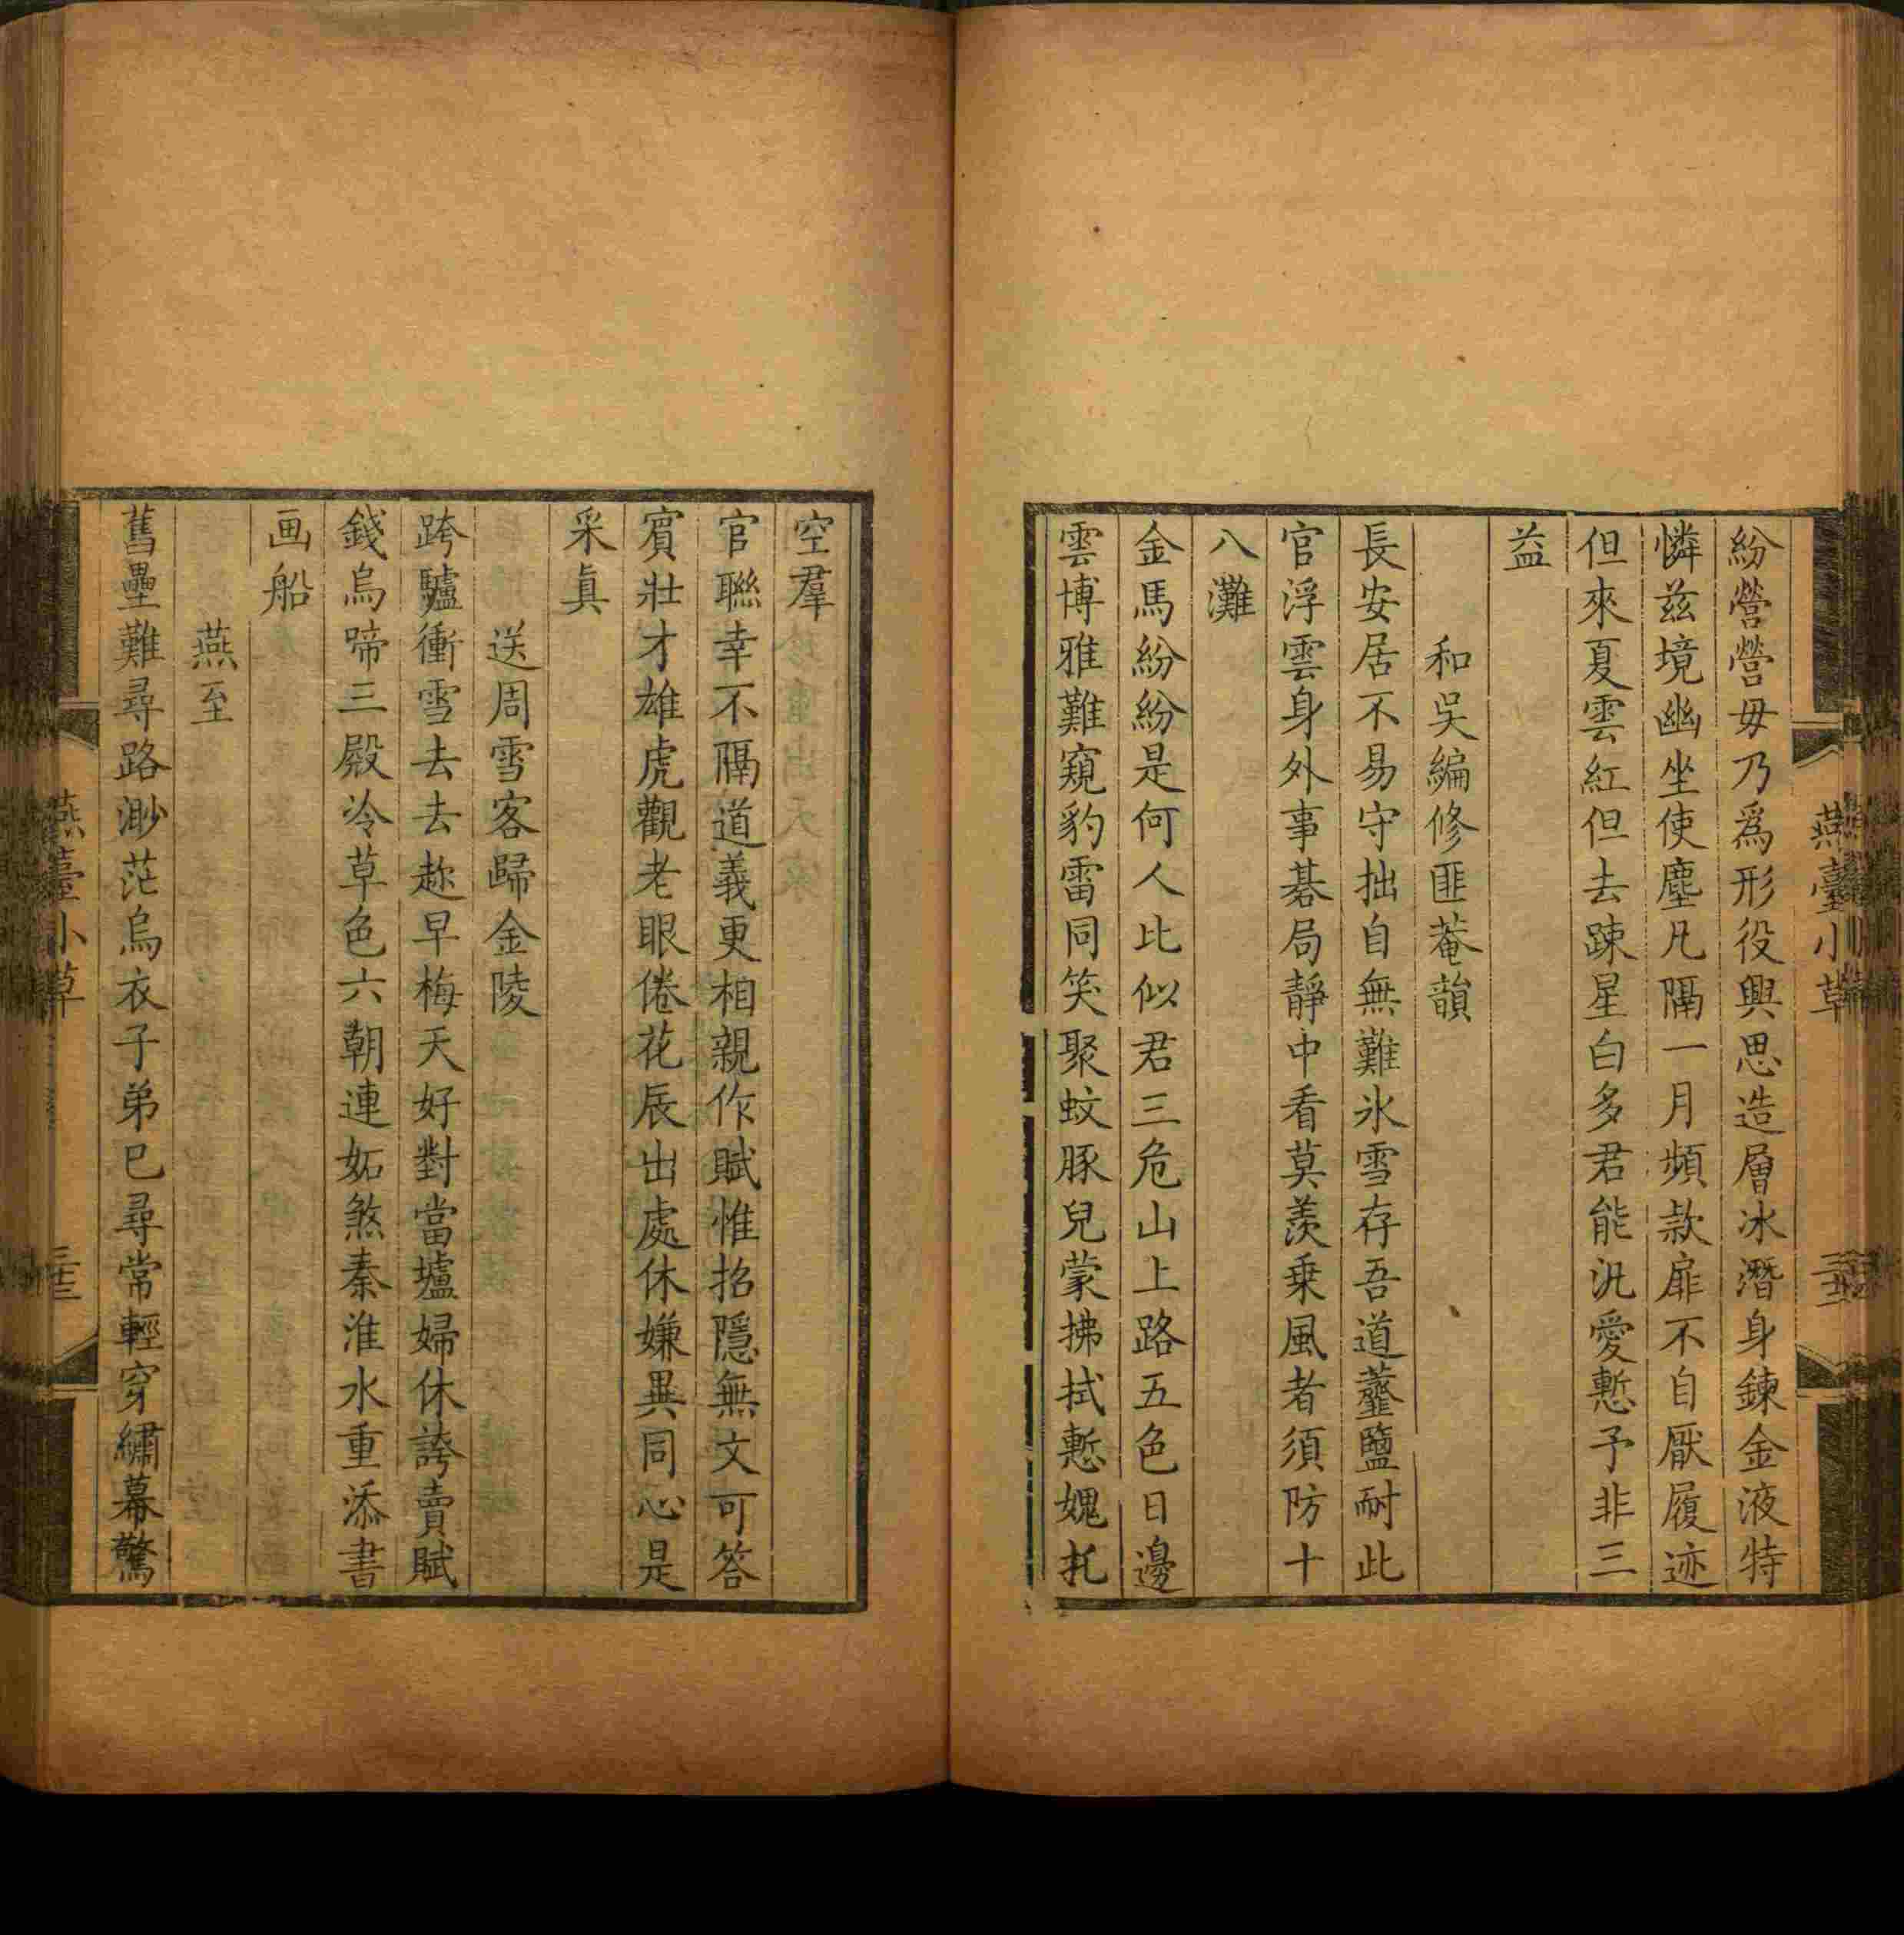 紛營營毋乃爲形役興思造層冰潛身鍊金液特
憐兹境幽坐使塵凡隔一月頻款扉不自厭履迹
但來夏雲紅但去踈星白多君能汎愛慙予非三
益
和吳編修匪菴韻
長安居不易守拙自無難氷雪存吾道虀鹽耐此
官浮雲身外事碁局靜中看莫羨乗風者須防十
八灘
金馬紛紛是何人比似君三危山上路五色日邊
雲博雅難窺豹雷同笑聚蚊豚兒蒙拂拭慙媿托
空羣
官聯幸不隔道義更相親作賦惟招隱無文可答
賓壯才雄虎觀老眼倦花辰出處休嫌異同心是
采眞
送周雪客歸金陵
跨驢衝雪去去趂早梅天好對當壚婦休誇賣賦
錢烏啼三殿冷草色六朝連妬煞秦淮水重添書
画船
燕至
舊壘難尋路渺茫烏衣子弟巳尋常輕穿繡幕驚
燕臺小草
燕臺小草